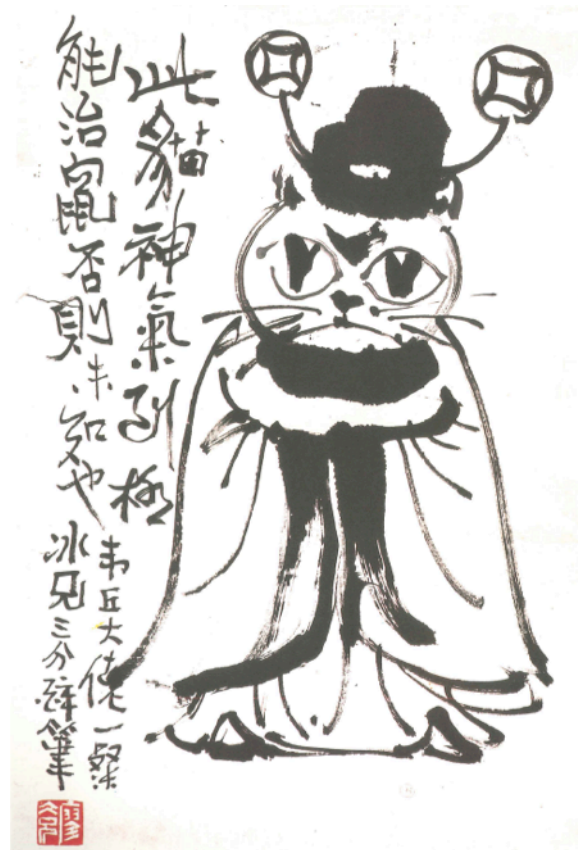 此貓神氣到極
能治鼠否則未知也
韦丘大佬一粲
冰兄三分醉筆
廖冰兄